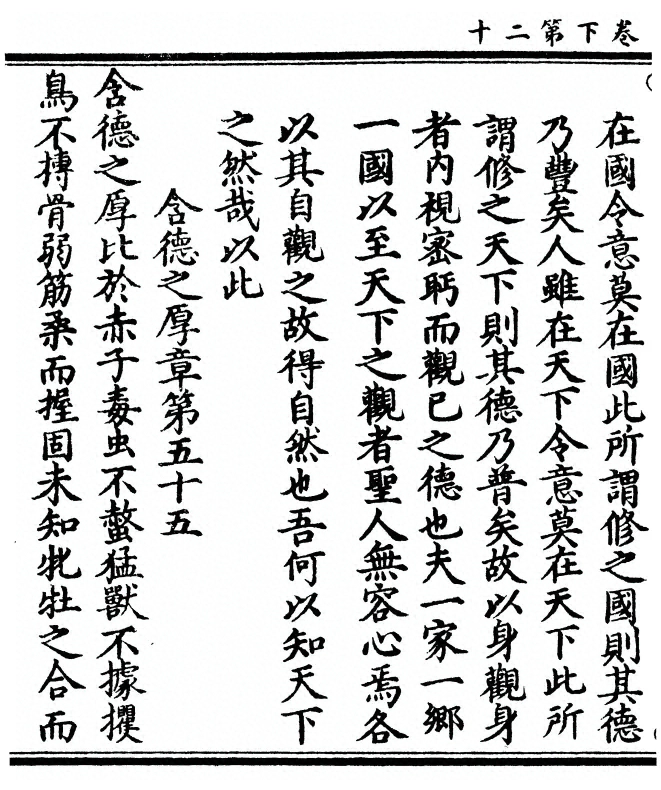 卷下第二十
在國令意莫在國此所謂修之國則其德
乃豐矣人雖在天下令意莫在天下此所
謂修之天下則其德乃普矣故以身觀身
者內視密眄而觀已之德也夫一家一鄉
一國以至天下之觀者聖人無容心焉各
以其自觀之故得自然也吾何以知天下
之然哉以此
含德之厚章第五十五
含德之厚比於赤子毒虫不螫猛獸不據攫
鳥不搏骨弱筋柔而握固未知牝牡之合而